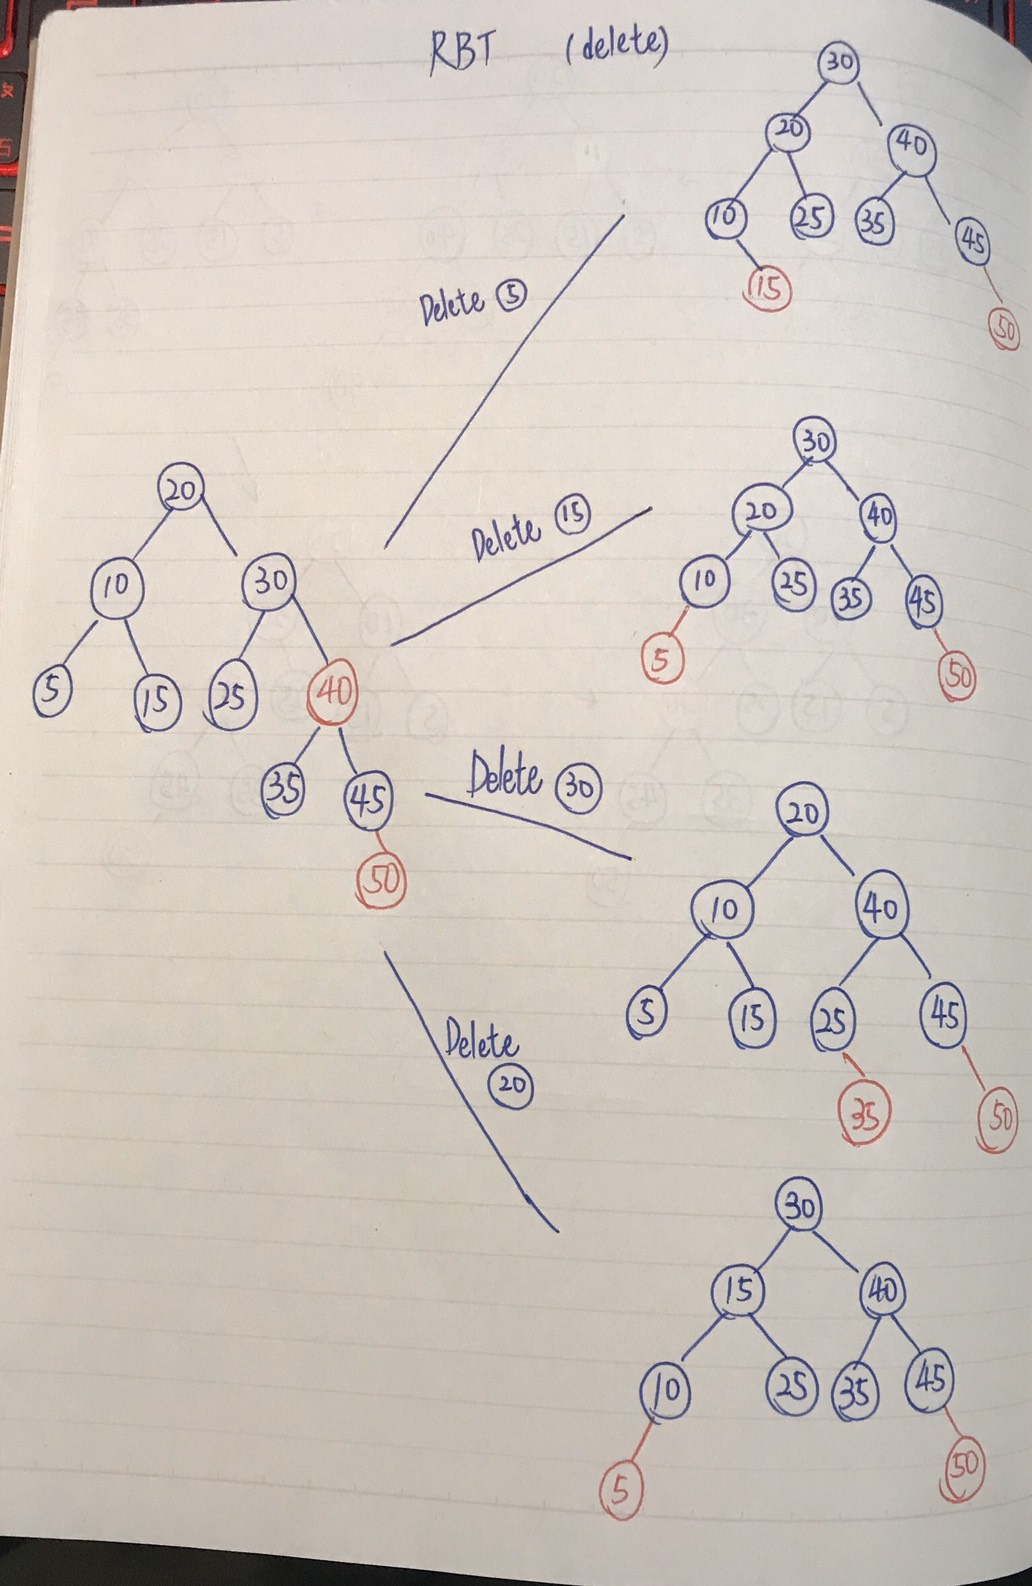 RBT (delete)
30
20 40
10 25 35 45
15 50
Delete 5
20
10 30
5 15 25 40
35 45
50
Delete 15
30
20 40
10 25 35 45
5 50
Delete 30
20
10 40
5 15 25 45
35 50
Delete
20
30
15 40
10 25 35 45
5 50